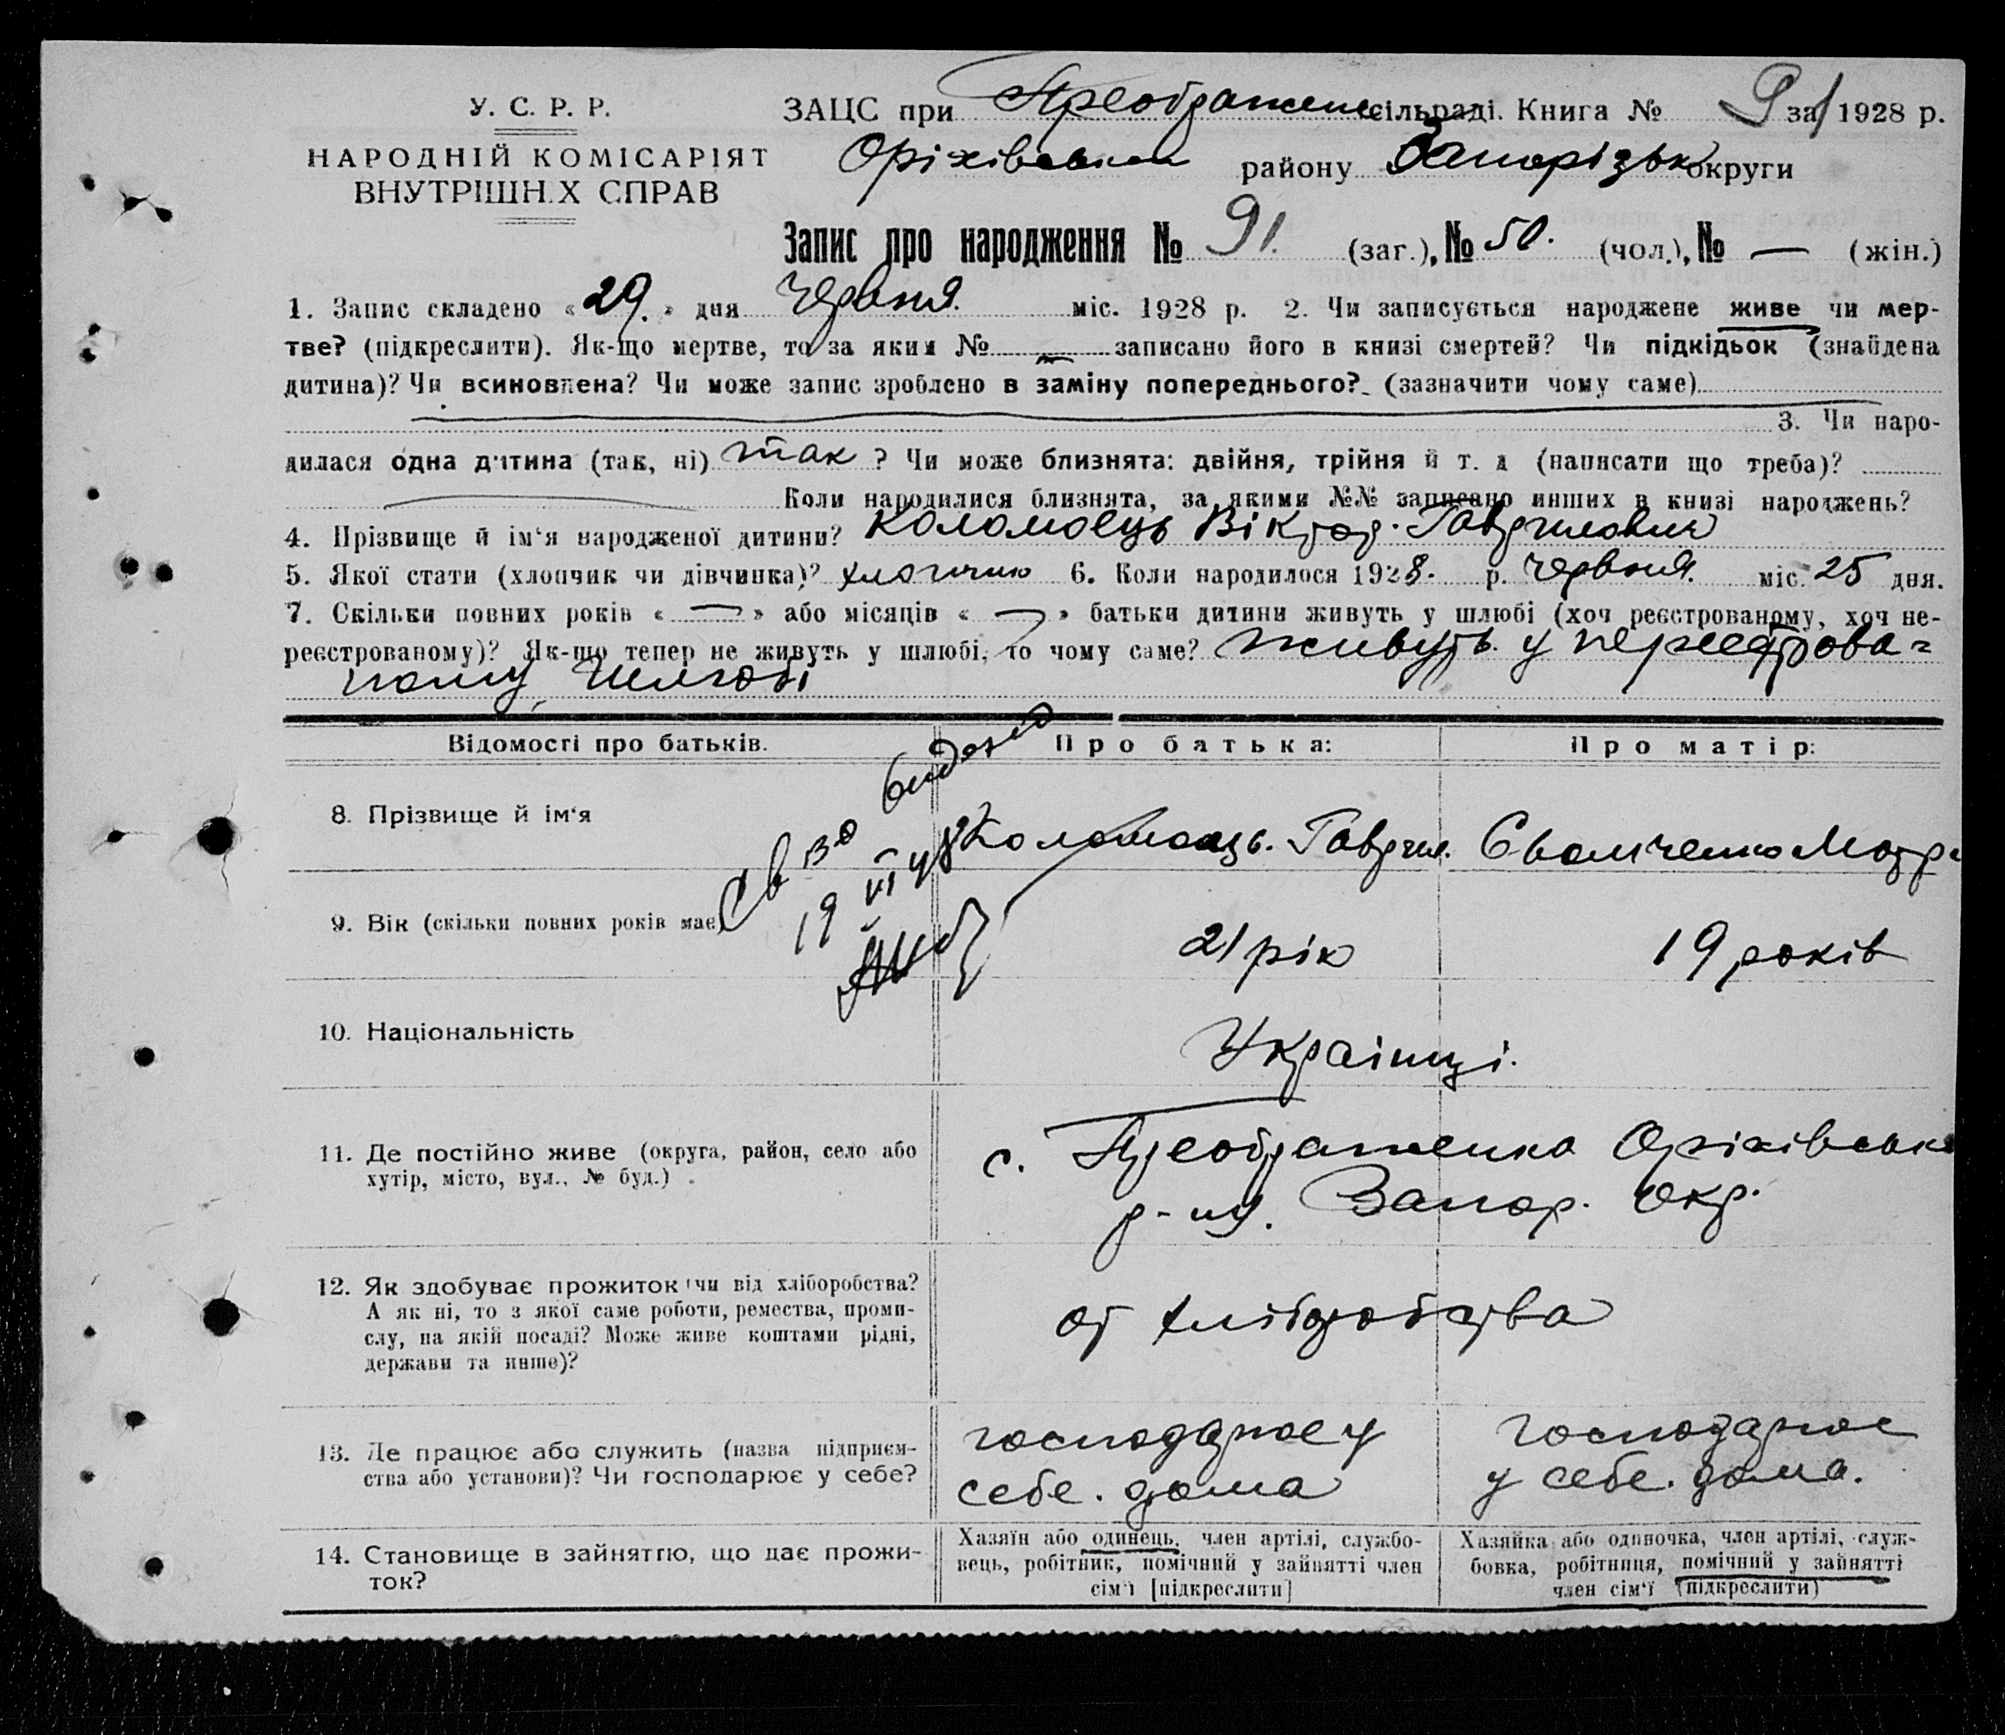 У. С. Р. Р.
НАРОДНІЙ КОМІСАРІЯТ
ВНУТРІШНІХ СПРАВ
ЗАЦС при Преображенс сільраді. Книга № за 1928 р.
Оріхівськи району Запорізьк округи
Запис про народження № 91. (заг.), № 50. (чол.), № — (жін.)
1. Запис складено «29.» дня червня. міс. 1928 р. 2. Чи записується народжене живе чи мер-
тве? (підкреслити). Як-що мертве, то за яким № записано його в книзі смертей? Чи підкідьок (знайдена
дитина)? Чи всиновлена? Чи може запис зроблено в заміну попереднього? (зазначити чому саме)
3. Чи наро-
дилася одна дитина (так, ні) так ? Чи може близнята: двійня, трійня й т. д (написати що треба)?
Коли народилися близнята, за якими №№ записано инших в книзі народжень?
4. Прізвище й ім'я народженої дитини? Коломоець Віктор. Гаврилович
5. Якої стати (хлопчик чи дівчинка)? хлопчик 6. Коли народилося 1928. р. червня. міс. 25 дня.
7. Скільки повних років «—» або місяців «—» батьки дитини живуть у шлюбі (хоч реєстрованому, хоч не-
реєстрованому)? Як-що тепер не живуть у шлюбі, то чому саме? живуть у
шлюбі
Відомості про батьків. Про батька: Про матір:
видано
Св во
19 VI 48
8. Прізвище й ім'я Коломоець. Гаврил. Мотр
9. Вік (скільки повних років має) 21 рік 19 років
10. Національність Українці.
11. Де постійно живе (округа, район, село або с. Преображенка Оріхівськ
хутір, місто, вул., № буд.) р-ну. Запор. окр.
12. Як здобуває прожиток (чи від хліборобства? от хліборобства
А як ні, то з якої саме роботи, ремества, проми-
слу, на якій посаді? Може живе коштами рідні,
держави та инше)?
13. Де працює або служить (назва підприєм- господарює у господарює
ства або установи)? Чи господарює у себе? себе. дома у себе. дома.
14. Становище в зайняттю, що дає прожи-
ток?
Хазяїн або одинець, член артілі, службо-
вець, робітник, помічний у зайнятті член
сім'ї [підкреслити]
Хазяйка або одиночка, член артілі, служ-
бовка, робітниця, помічний у зайнятті
член сім'ї (підкреслити)